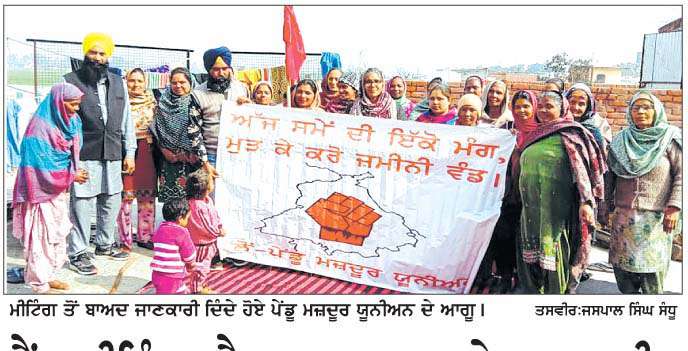 ਅੱਜ ਸਮੇਂ ਦੀ ਇੱਕੋ ਮੰਗ,
ਮੁੜ ਕੇ ਕਰੋ ਜ਼ਮੀਨੀ ਵੰਡ।
ਪੇਂਡੂ ਮਜ਼ਦੂਰ ਯੂਨੀਅਨ
ਮੀਟਿੰਗ ਤੋਂ ਬਾਅਦ ਜਾਣਕਾਰੀ ਦਿੰਦੇ ਹੋਏ ਪੇਂਡੂ ਮਜ਼ਦੂਰ ਯੂਨੀਅਨ ਦੇ ਆਗੂ। ਤਸਵੀਰ:ਜਸਪਾਲ ਸਿੰਘ ਸੰਧੂ